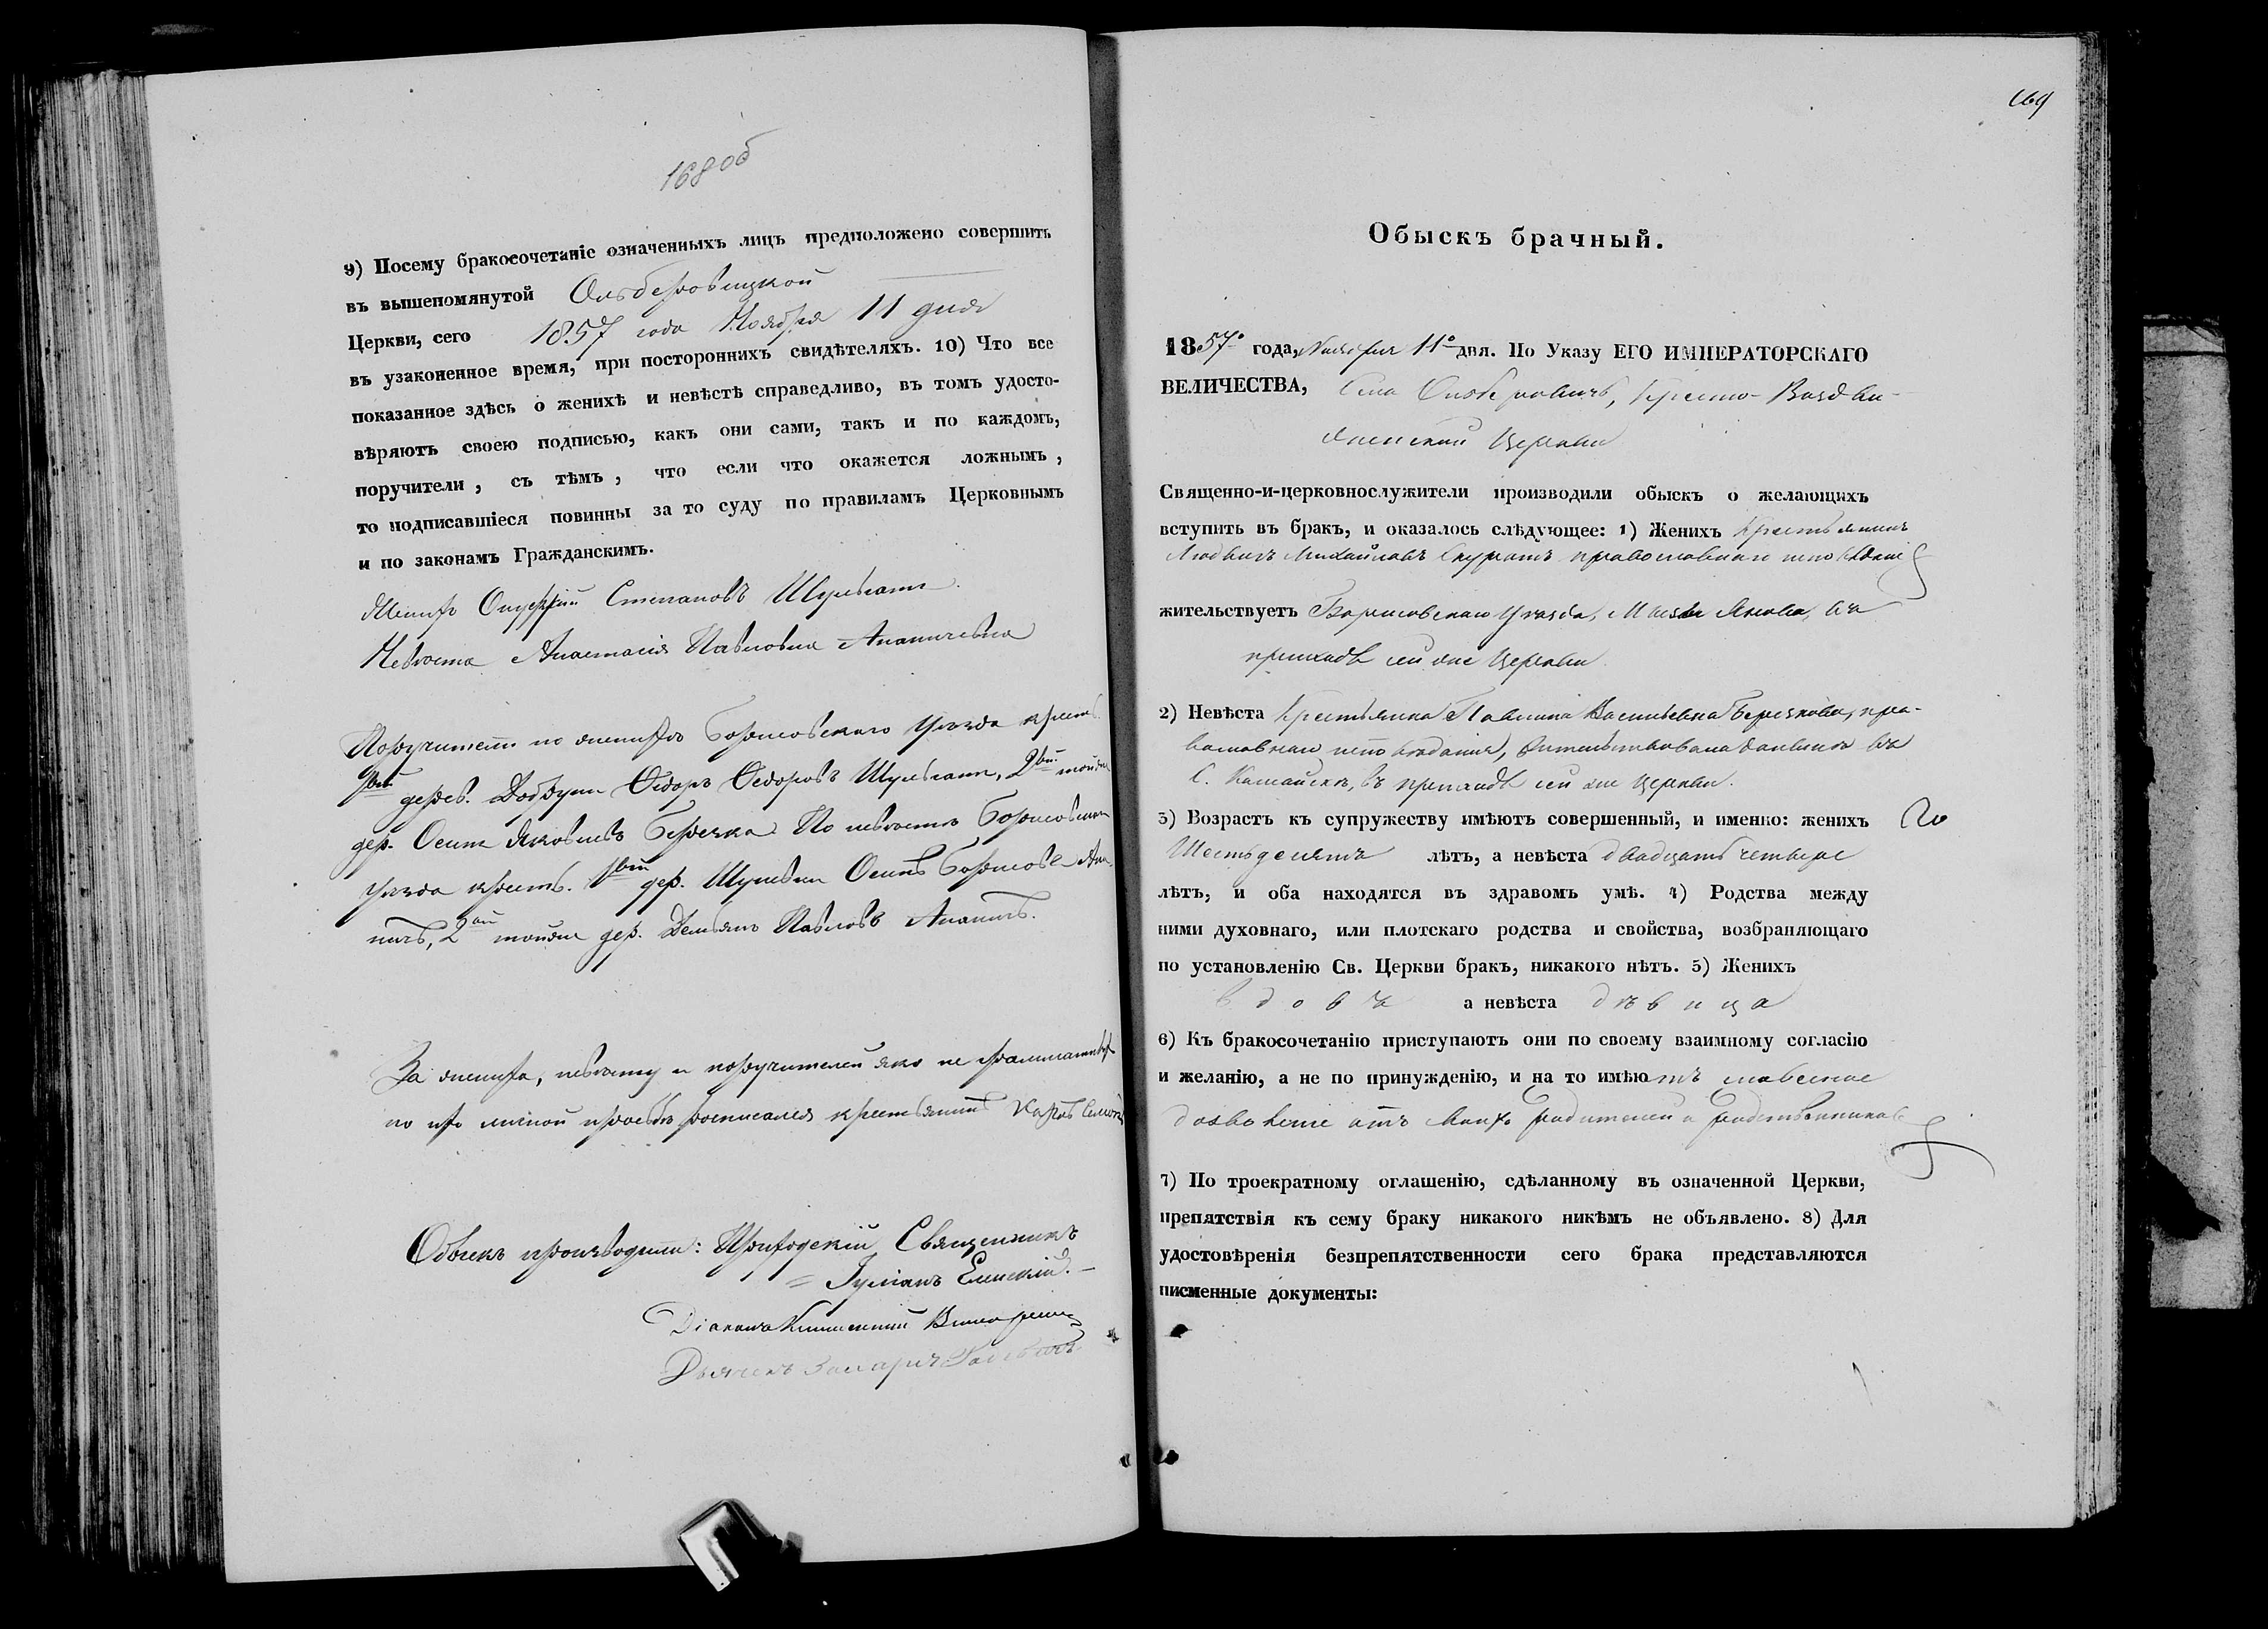 168 об
9) Посему бракосочетаніе означенныхъ лицъ предположено совершить
въ вышепомянутой Ольберовицкой
Церкви, сего 1857 года Ноября 11 дня
въ узаконенное время, при постороннихъ свидѣтеляхъ. 10) Что все
показанное здѣсь о женихѣ и невѣстѣ справедливо, въ томъ удосто-
вѣряютъ своею подписью, какъ они сами, такъ и по каждомъ,
поручители, съ тѣмъ, что если что окажется ложнымъ,
то подписавшіеся повинны за то суду по правиламъ Церковнымъ
и по законамъ Гражданскимъ.
Женихъ Онуфрій Степановъ Шульганъ
Невѣста Анастасія Павлова
Поручители по женихѣ Борисовскаго Уѣзда крест.
1вый дерев. Ѳедоръ Ѳедоровъ Шульганъ, 2вый тойже
дер. Осипъ Яковлевъ Берёзка. По невѣстѣ Борисовскаго
Уѣзда крестъ. 1вый дер. Осипъ Борисовъ Ана-
ничъ, 2ой тойже дер. Демьянъ Павловъ Ананичъ.
За жениха, невѣсту и поручителей яко не грамматныхъ
по ихъ личной просьбѣ росписался крестьянинъ
Обыскъ производили: Приходскій Священникъ
Іуліанъ Елинскій.
Діаконъ
Дьячекъ
169
Обыскъ брачный.
1857о года, Ноября 11о дня. По Указу ЕГО ИМПЕРАТОРСКАГО
ВЕЛИЧЕСТВА, Села Ольберовичъ, Кресто-Воздви-
женской Церкви
Священно-и-церковнослужители производили обыскъ о желающихъ
вступить въ бракъ, и оказалось слѣдующее: 1) Женихъ Крестьянинъ
Людвигъ Михайловъ Скуратъ православнаго исповѣданія
жительствуетъ Борисовскаго Уѣзда, въ
приходѣ сей же Церкви.
2) Невѣста Крестьянка Павлина Васильевна Берёзкова, пра-
вославнаго исповѣданія, жительствовала доселѣ въ
С. въ приходѣ сей же Церкви.
3) Возрастъ къ супружеству имѣютъ совершенный, и именно: женихъ
Шестьдесятъ лѣтъ, а невѣста двадцать четыре
лѣтъ, и оба находятся въ здравомъ умѣ. 4) Родства между
ними духовнаго, или плотскаго родства и свойства, возбраняющаго
по установленію Св. Церкви бракъ, никакого нѣтъ. 5) Женихъ
вдовъ а невѣста дѣвица
6) Къ бракосочетанію приступаютъ они по своему взаимному согласію
и желанію, а не по принужденію, и на то имѣютъ словесное
дозволеніе отъ своихъ родителей и родственниковъ
7) По троекратному оглашенію, сдѣланному въ означенной Церкви,
препятствія къ сему браку никакого никѣмъ не объявлено. 8) Для
удостовѣренія безпрепятственности сего брака представляются
писменные документы: